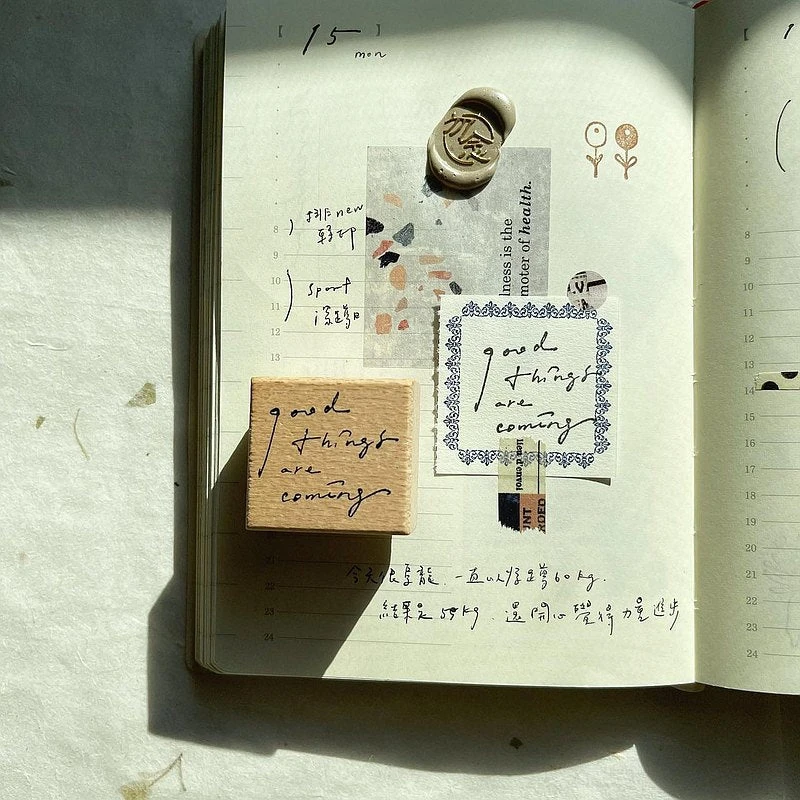 15
mon
lness is the
moter of health.
排 new
章印
sport
深蹲日
good
things
are
coming
good
things
are
coming
lien d'envoi
UNT
RDED
今天很烏龍,一直以為深蹲60kg.
結果是55kg.還開心覺得力量進步
8
9
10
11
12
13
21
22
23
24
8
9
10
11
12
13
14
15
16
17
18
19
20
21
22
23
24